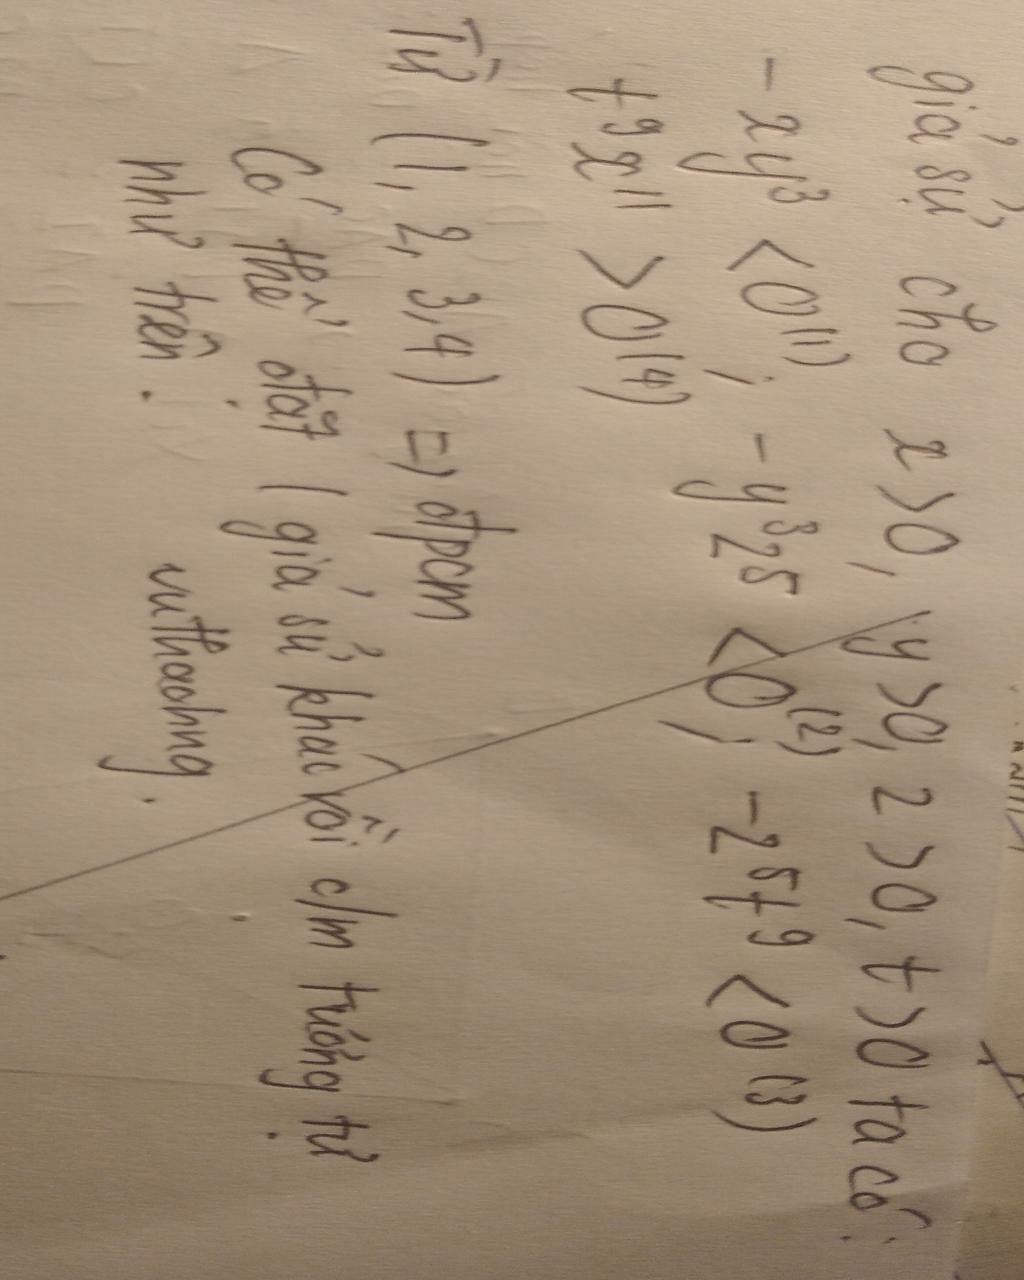 giả sử cho x>0, y>0, z>0, t>0 ta có:
- xy³ <0⁽¹⁾; - y³z⁵ <0⁽²⁾; - z⁵t⁹ <0 (3)
t⁹x¹¹ >0⁽⁴⁾
Từ (1, 2, 3,4) => đpcm
Có thể đặt 1 giả sử khác rồi c/m tương tự
như trên.
vuthaohng.